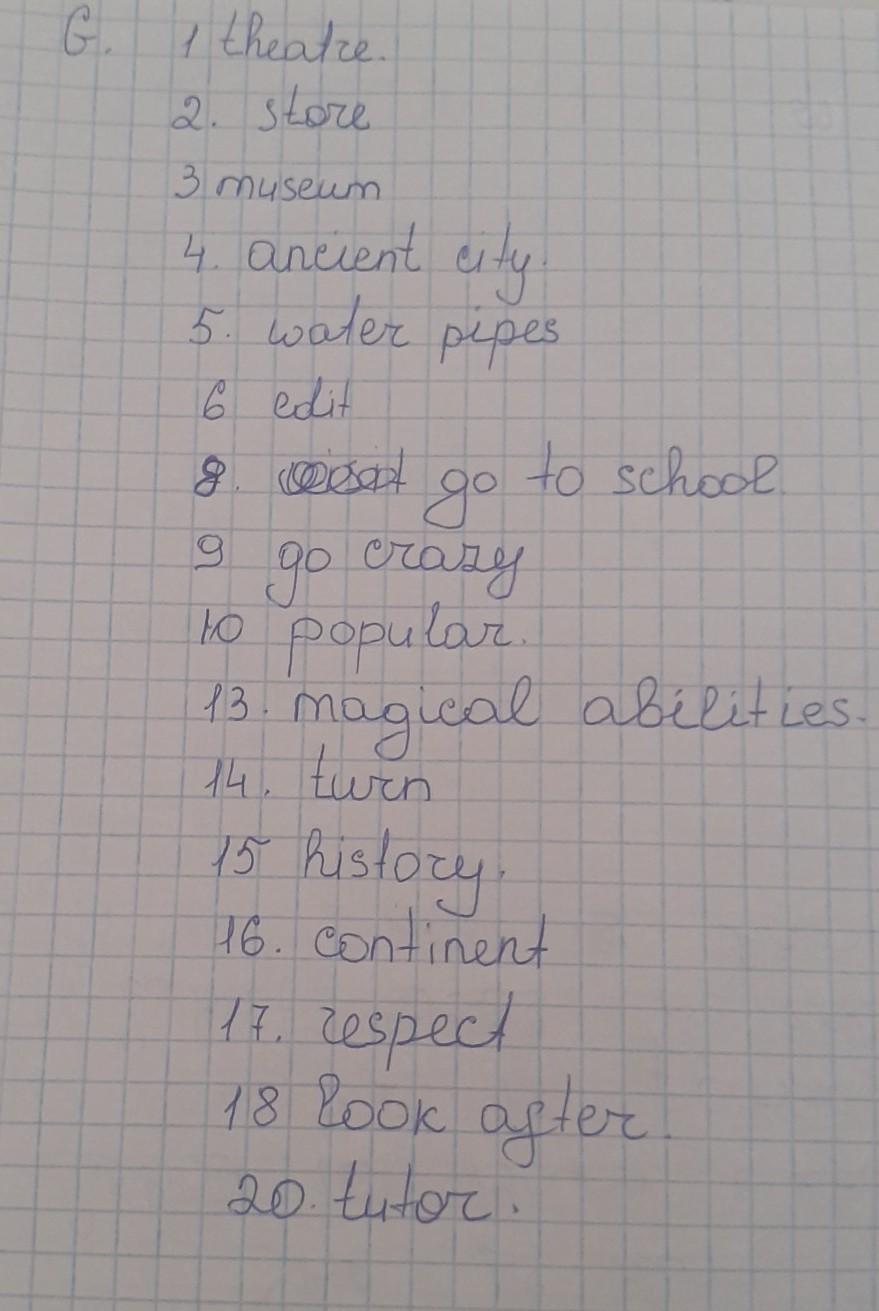 G. 1 theatre.
2. store
3 museum
4. ancient city.
5. water pipes
6 edit
8. go to school
9 go crazy
10 popular.
13. magical abilities.
14. turn
15 history.
16. continent
17. respect
18 look after.
20. tutor.